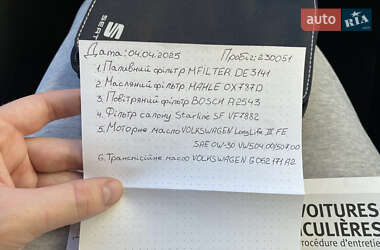 auto RIA
SEAT
Дата: 04.04.2025 Пробіг: 230051
1. Паливний фільтр MFILTER DE3141
2. Масляний фільтр MAHLE OX787D
3. Повітряний фільтр BOSCH A2543
4. Фільтр салону Starline SF VF7882
5. Моторне масло VOLKSWAGEN LongLife III FE
SAE 0W-30 VW504.00/507.00
6. Трансмісійне масло VOLKSWAGEN G 052 171 A2
VOITURES
CULIÈRES
rocédure d'entretie